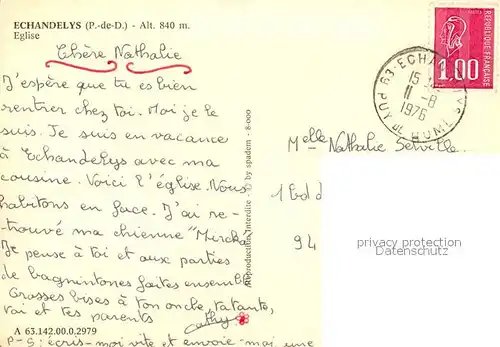 ECHANDELYS (P.-de-D.) - Alt. 840 m.
Eglise
Chère Nathalie
J'espère que tu es bien
rentrer chez toi. Moi je le
suis. Je suis en vacance
à Echandelys avec ma
cousine. Voici l'église. Nous
habitons en face. J'ai re-
trouvé ma chienne "Mircka
Je pense à toi et aux parties
de bagnintones faites ensemble
Grosses bises à ton oncle, ta tante,
toi et tes parents Cathy
P-S: écris-moi vite et envoie-moi une
A 63.142.00.0.2979
Reproduction Interdite - © by spadem - 8-000
REPUBLIQUE FRANÇAISE
POSTES
1.00
63-ECHA
15
11-8
1976
PUY DE DOME
Melle Nathalie Selville.
1 Bd d
94
privacy protection
Datenschutz